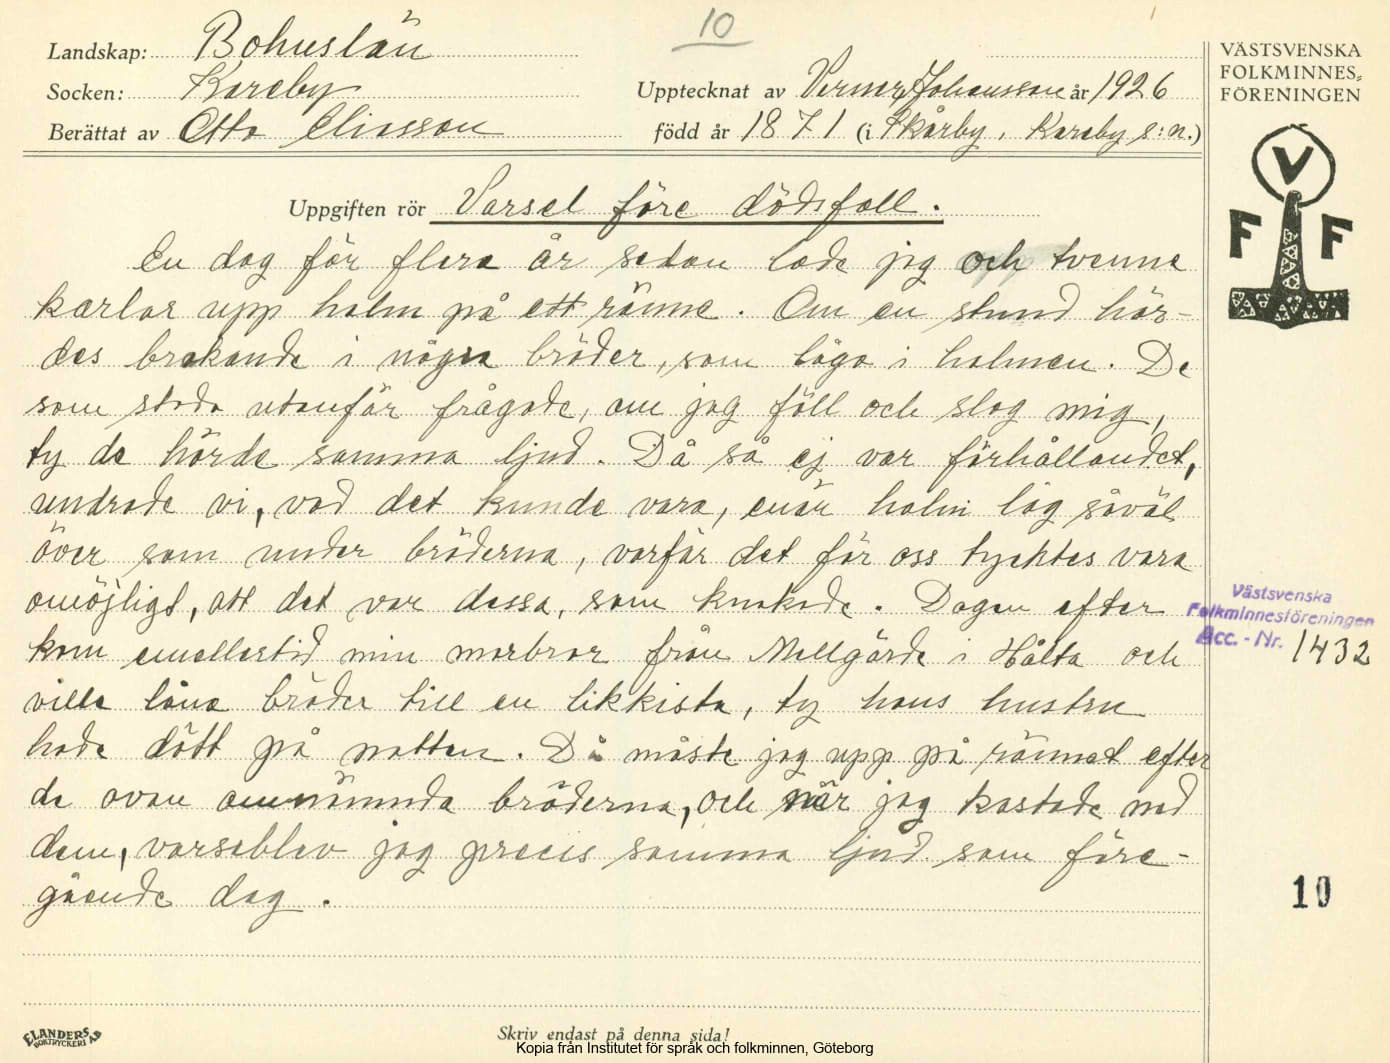 10
Landskap: Bohuslän
Socken: Kareby
Upptecknat av Verner Johansson år 1926
Berättat av Otto Eliasson
född år 1871 (i Skårby, Kareby s:n.)
VÄSTSVENSKA
FOLKMINNES=
FÖRENINGEN
V
F F
Uppgiften rör Varsel före dödsfall.
En dag för flera år sedan lade jag och tvenne
karlar upp halm på ett ränne. Om en stund hör-
des brakande i några bräder, som lågo i halmen. De
som stodo utanför frågade, om jag föll och slog mig,
ty de hörde samma ljud. Då så ej var förhållandet,
undrade vi, vad det kunde vara, enär halm låg såväl
över som under bräderna, varför det för oss tycktes vara
omöjligt, att det var dessa, som knakade. Dagen efter
kom emellertid min morbror från Mellgärde i Hålta och
ville låna bräder till en likkista, ty hans hustru
hade dött på natten. Då måste jag upp på rännet efter
de ovan omnämnda bräderna, och när jag kastade ned
dem, varseblev jag precis samma ljud som före-
gående dag.
Västsvenska
Folkminnesföreningen
Acc. - Nr. 1432
10
ELANDERS
BOKTRYCKERI A.B
Skriv endast på denna sida!
Kopia från Institutet för språk och folkminnen, Göteborg